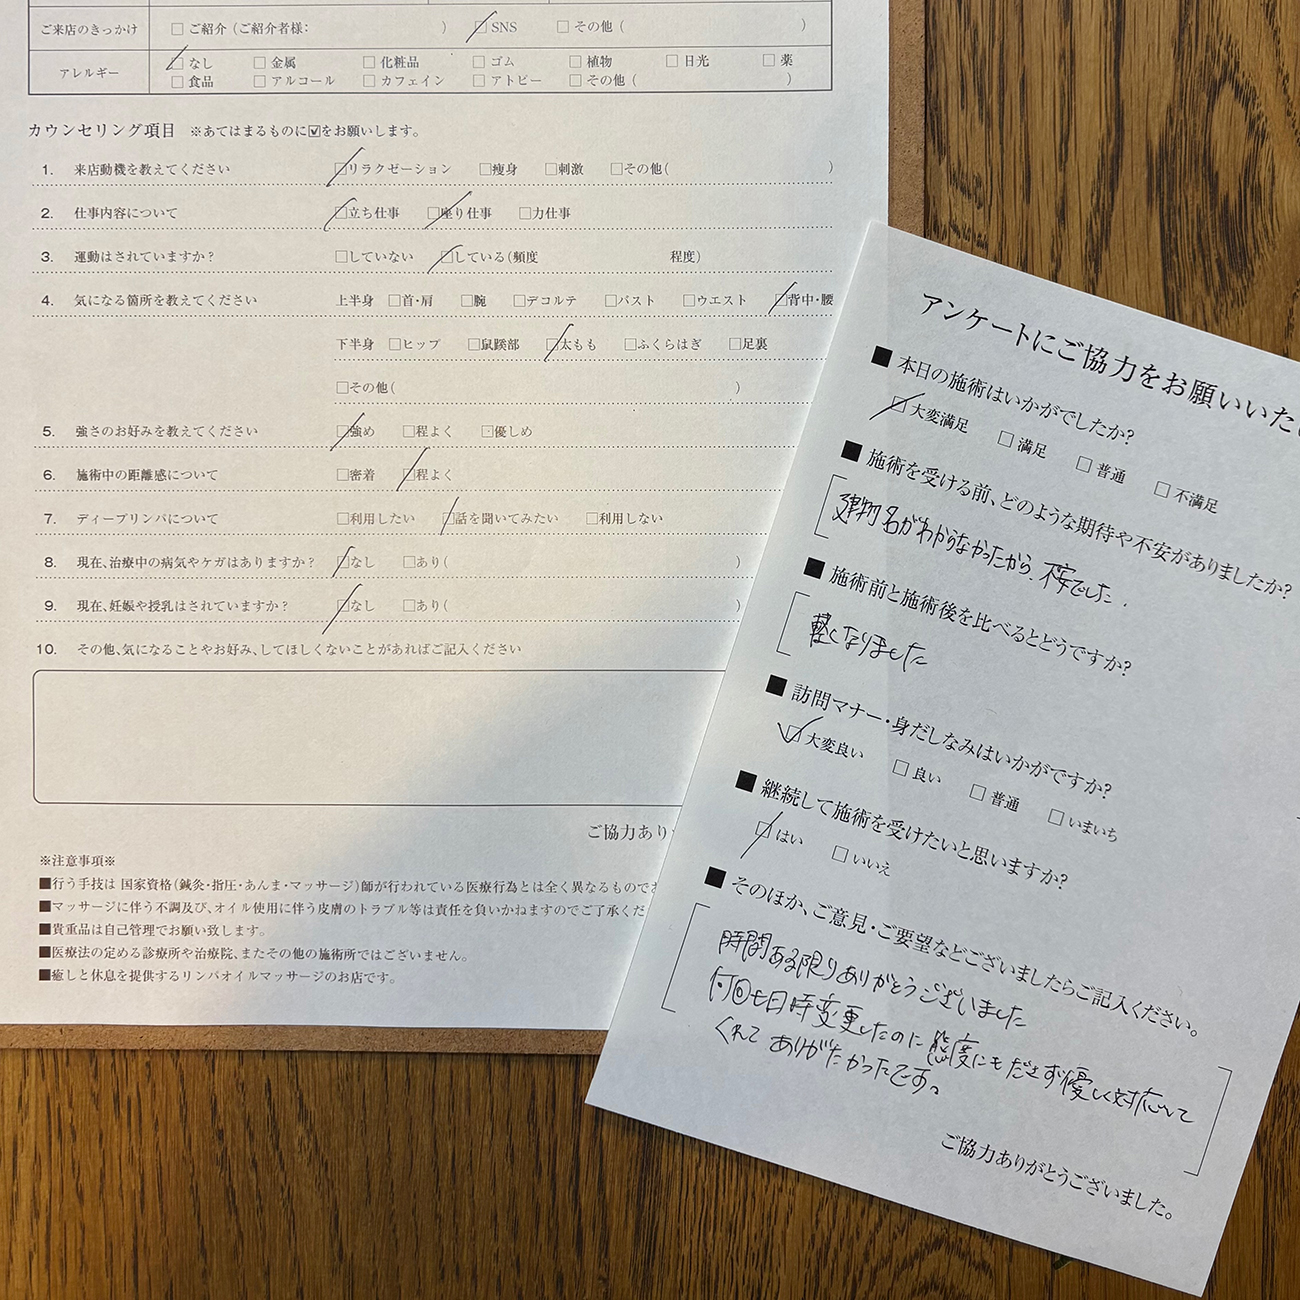 ご来店のきっかけ □ ご紹介（ご紹介者様： ） □ SNS □ その他（ ）
アレルギー □ なし □ 金属 □ 化粧品 □ ゴム □ 植物 □ 日光 □ 薬
□ 食品 □ アルコール □ カフェイン □ アトピー □ その他（ ）
カウンセリング項目 ※あてはまるものに☑をお願いします。
1. 来店動機を教えてください □リラクゼーション □痩身 □刺激 □その他( )
2. 仕事内容について □立ち仕事 □座り仕事 □力仕事
3. 運動はされていますか？ □していない □している(頻度 程度)
4. 気になる箇所を教えてください 上半身 □首・肩 □腕 □デコルテ □バスト □ウエスト □背中・腰
下半身 □ヒップ □鼠蹊部 □太もも □ふくらはぎ □足裏
□その他( )
5. 強さのお好みを教えてください □強め □程よく □優しめ
6. 施術中の距離感について □密着 □程よく
7. ディープリンパについて □利用したい □話を聞いてみたい □利用しない
8. 現在、治療中の病気やケガはありますか？ □なし □あり( )
9. 現在、妊娠や授乳はされていますか？ □なし □あり( )
10. その他、気になることやお好み、してほしくないことがあればご記入ください
ご協力あり
※注意事項※
■行う手技は 国家資格（鍼灸・指圧・あんま・マッサージ）師が行われている医療行為とは全く異なるもので
■マッサージに伴う不調及び、オイル使用に伴う皮膚のトラブル等は責任を負いかねますのでご了承くだ
■貴重品は自己管理でお願い致します。
■医療法の定める診療所や治療院、またその他の施術所ではございません。
■癒しと休息を提供するリンパオイルマッサージのお店です。
アンケートにご協力をお願いいた
■ 本日の施術はいかがでしたか？
□ 大変満足 □ 満足 □ 普通 □ 不満足
■ 施術を受ける前、どのような期待や不安がありましたか？
建物名がわからなかったから、不安でした.
■ 施術前と施術後を比べるとどうですか？
軽くなりました
■ 訪問マナー・身だしなみはいかがですか？
□ 大変良い □ 良い □ 普通 □ いまいち
■ 継続して施術を受けたいと思いますか？
□ はい □ いいえ
■ そのほか、ご意見・ご要望などございましたらご記入ください。
時間ある限りありがとうございました
何回も日時変更したのに態度にもださず優しく対応して
くれてありがたかったです。
ご協力ありがとうございました。